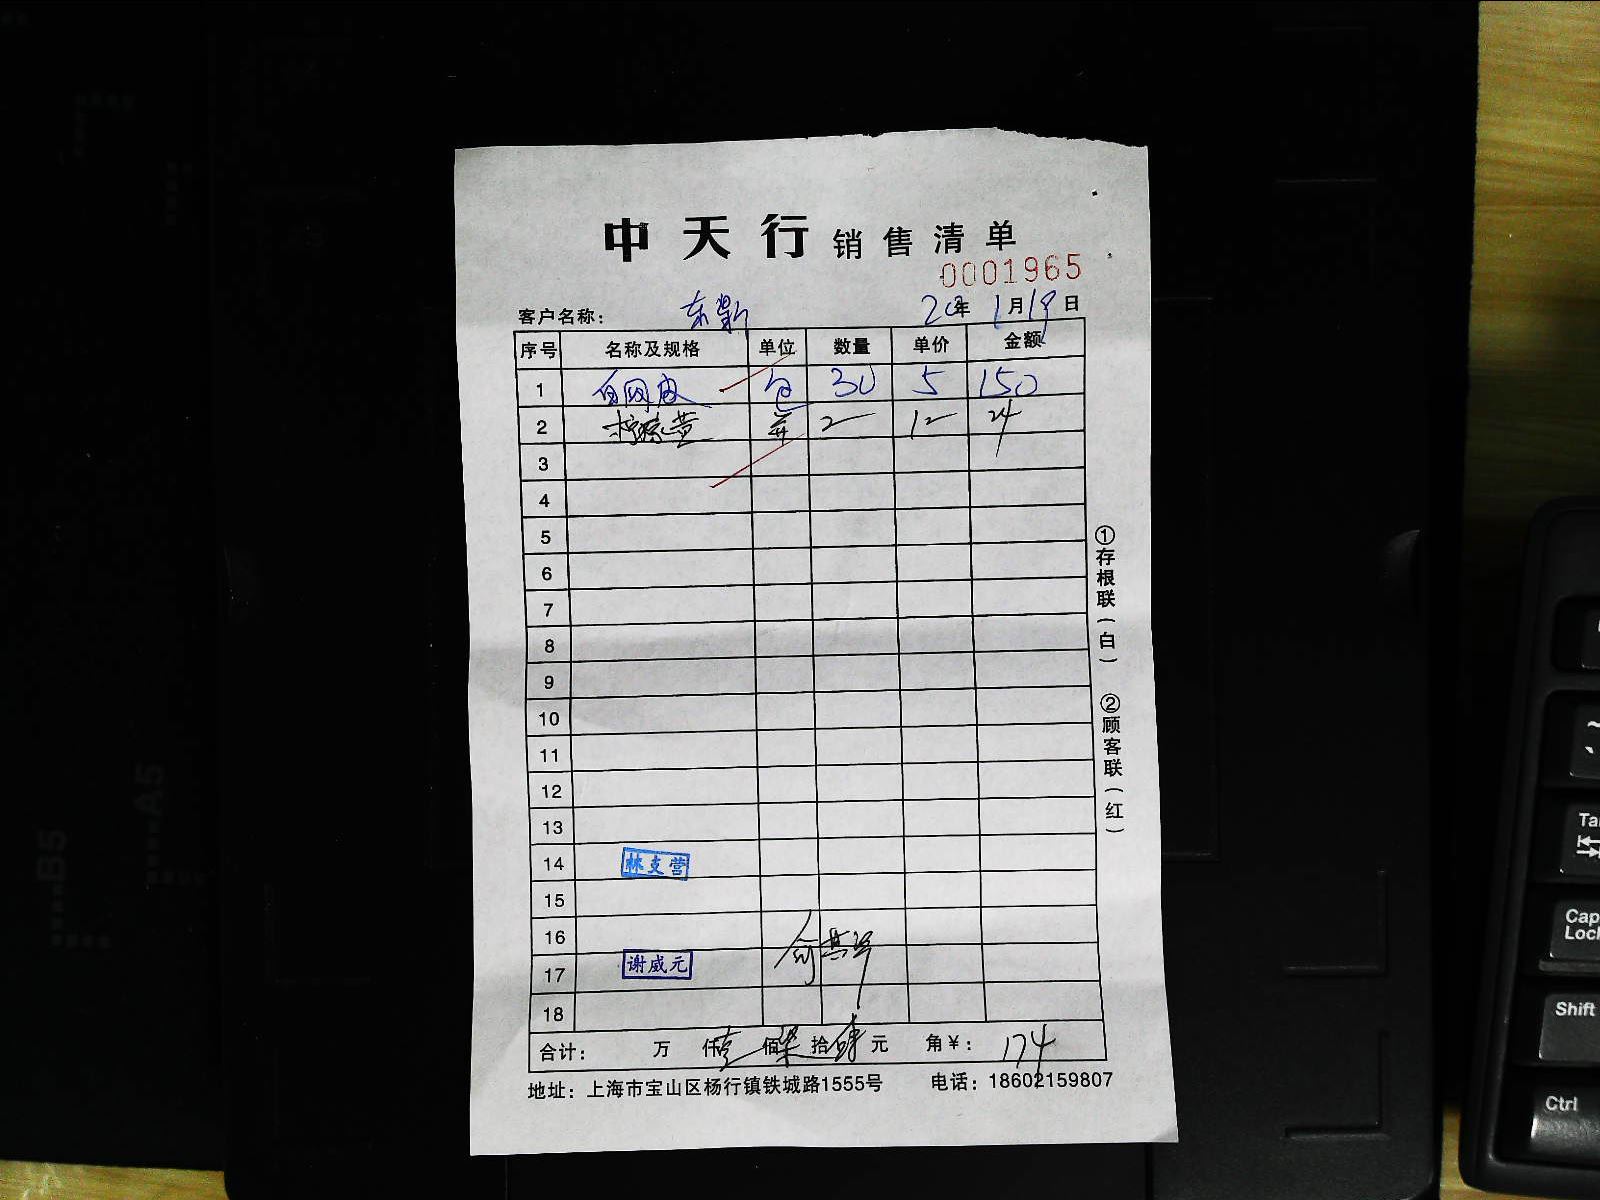 中天行销售清单
0001965
客户名称： 东 20年 1月19日
序号 名称及规格 单位 数量 单价 金额
1 包 30 5 150
2 2 12 24
3
4
5
6
7
8
9
10
11
12
13
14 林支营
15
16
17 谢威元
18
合计： 万 仟壹佰柒拾肆元 角¥： 174
地址：上海市宝山区杨行镇铁城路1555号 电话：18602159807
①存根联（白） ②顾客联（红）
B5
A5
Tab
Caps Lock
Shift
Ctrl